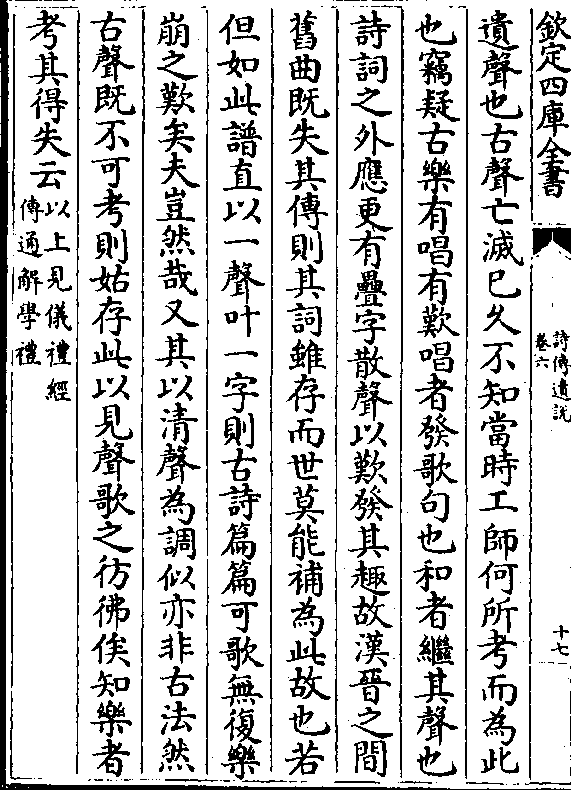 欽定四庫全書
詩傳遺說
卷六
十七
遺聲也古聲亡滅已久不知當時工師何所考而為此
也竊疑古樂有唱有歎唱者發歌句也和者繼其聲也
詩詞之外應更有疊字散聲以歎發其趣故漢晉之間
舊曲既失其傳則其詞雖存而世莫能補為此故也若
但如此譜直以一聲叶一字則古詩篇篇可歌無復樂
崩之歎矣夫豈然哉又其以清聲為調似亦非古法然
古聲既不可考則姑存此以見聲歌之彷彿俟知樂者
考其得失云
以上見儀禮經
傳通解學禮